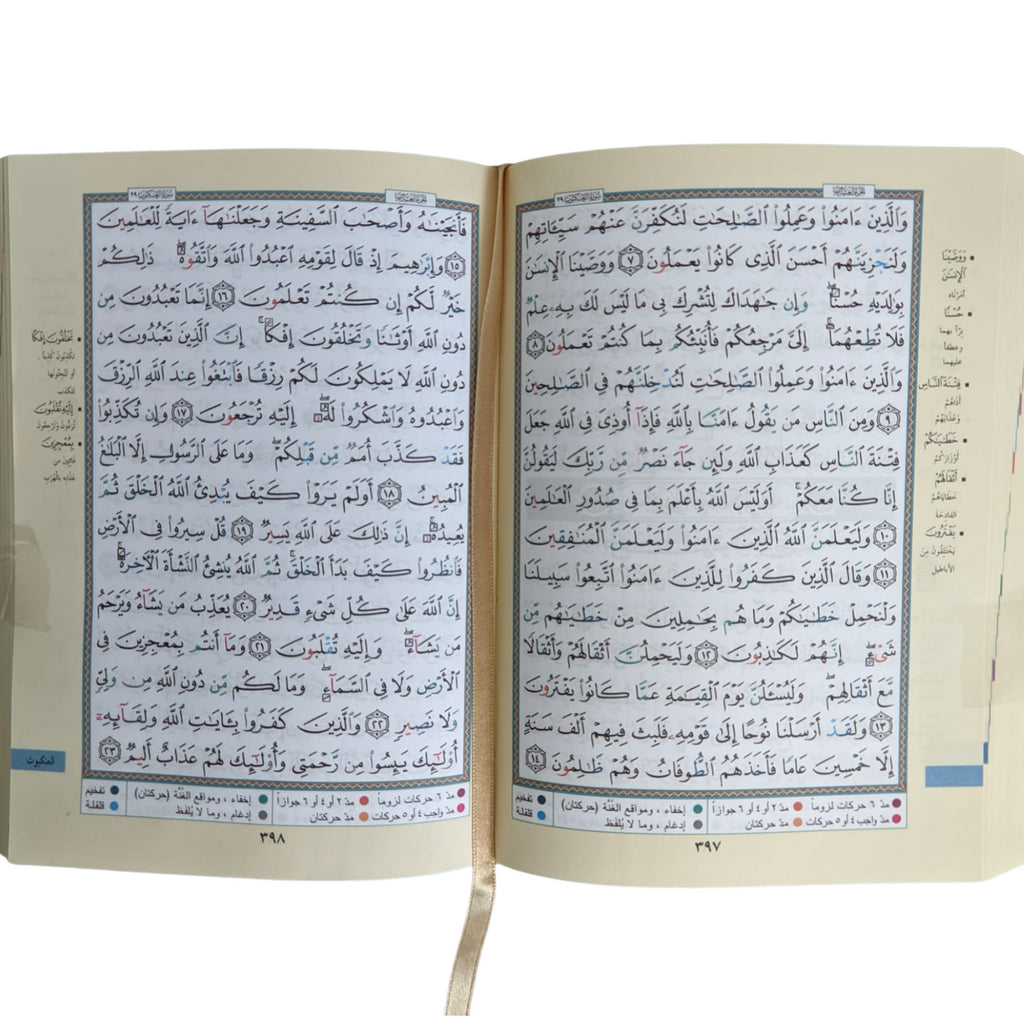 سورة العنكبوت ٢٩
وَالَّذِينَ ءَامَنُوا وَعَمِلُوا الصَّالِحَاتِ لَنُكَفِّرَنَّ عَنْهُمْ سَيِّئَاتِهِمْ
وَلَنَجْزِيَنَّهُمْ أَحْسَنَ الَّذِي كَانُوا يَعْمَلُونَ ٧ وَوَصَّيْنَا الْإِنسَٰنَ
بِوَٰلِدَيْهِ حُسْنًا ۖ وَإِن جَٰهَدَاكَ لِتُشْرِكَ بِي مَا لَيْسَ لَكَ بِهِۦ عِلْمٌ
فَلَا تُطِعْهُمَا ۚ إِلَيَّ مَرْجِعُكُمْ فَأُنَبِّئُكُم بِمَا كُنتُمْ تَعْمَلُونَ ٨
وَالَّذِينَ ءَامَنُوا وَعَمِلُوا الصَّالِحَاتِ لَنُدْخِلَنَّهُمْ فِي الصَّٰلِحِينَ
٩ وَمِنَ النَّاسِ مَن يَقُولُ ءَامَنَّا بِاللَّهِ فَإِذَآ أُوذِيَ فِي اللَّهِ جَعَلَ
فِتْنَةَ النَّاسِ كَعَذَابِ اللَّهِ وَلَئِن جَآءَ نَصْرٌ مِّن رَّبِّكَ لَيَقُولُنَّ
إِنَّا كُنَّا مَعَكُمْ ۚ أَوَلَيْسَ اللَّهُ بِأَعْلَمَ بِمَا فِي صُدُورِ الْعَٰلَمِينَ
١٠ وَلَيَعْلَمَنَّ اللَّهُ الَّذِينَ ءَامَنُوا وَلَيَعْلَمَنَّ الْمُنَٰفِقِينَ
١١ وَقَالَ الَّذِينَ كَفَرُوا لِلَّذِينَ ءَامَنُوا اتَّبِعُوا سَبِيلَنَا
وَلْنَحْمِلْ خَطَٰيَٰكُمْ وَمَا هُم بِحَٰمِلِينَ مِنْ خَطَٰيَٰهُم مِّن
شَيْءٍ ۖ إِنَّهُمْ لَكَٰذِبُونَ ١٢ وَلَيَحْمِلُنَّ أَثْقَالَهُمْ وَأَثْقَالًا
مَّعَ أَثْقَالِهِمْ ۖ وَلَيُسْـَٔلُنَّ يَوْمَ الْقِيَٰمَةِ عَمَّا كَانُوا يَفْتَرُونَ
١٣ وَلَقَدْ أَرْسَلْنَا نُوحًا إِلَىٰ قَوْمِهِۦ فَلَبِثَ فِيهِمْ أَلْفَ سَنَةٍ
إِلَّا خَمْسِينَ عَامًا فَأَخَذَهُمُ الطُّوفَانُ وَهُمْ ظَٰلِمُونَ ١٤
وَوَصَّيْنَا
الْإِنسَٰنَ
أمرناه
حُسْنًا
برًّا بهما
وعطفًا
عليهما
فِتْنَةَ النَّاسِ
أذاهم
وعذابهم
خَطَٰيَٰكُمْ
أوزاركم
أَثْقَالَهُمْ
خطاياهم
الفادحة
يَفْتَرُونَ
يختلقون من
الأباطيل
مدّ ٦ حركات لزوماً مدّ ٢ أو ٤ أو ٦ جوازاً إخفاء ، ومواقع الغنّة (حركتان) تفخيم
مدّ واجب ٤ أو ٥ حركات مدّ حركتان إدغام ، وما لا يُلفظ قلقلة
٣٩٧
سورة العنكبوت ٢٩
فَأَنجَيْنَٰهُ وَأَصْحَٰبَ السَّفِينَةِ وَجَعَلْنَٰهَآ ءَايَةً لِّلْعَٰلَمِينَ
١٥ وَإِبْرَٰهِيمَ إِذْ قَالَ لِقَوْمِهِ اعْبُدُوا اللَّهَ وَاتَّقُوهُ ۖ ذَٰلِكُمْ
خَيْرٌ لَّكُمْ إِن كُنتُمْ تَعْلَمُونَ ١٦ إِنَّمَا تَعْبُدُونَ مِن
دُونِ اللَّهِ أَوْثَٰنًا وَتَخْلُقُونَ إِفْكًا ۚ إِنَّ الَّذِينَ تَعْبُدُونَ مِن
دُونِ اللَّهِ لَا يَمْلِكُونَ لَكُمْ رِزْقًا فَابْتَغُوا عِندَ اللَّهِ الرِّزْقَ
وَاعْبُدُوهُ وَاشْكُرُوا لَهُۥٓ ۖ إِلَيْهِ تُرْجَعُونَ ١٧ وَإِن تُكَذِّبُوا
فَقَدْ كَذَّبَ أُمَمٌ مِّن قَبْلِكُمْ ۖ وَمَا عَلَى الرَّسُولِ إِلَّا الْبَلَٰغُ
الْمُبِينُ ١٨ أَوَلَمْ يَرَوْا كَيْفَ يُبْدِئُ اللَّهُ الْخَلْقَ ثُمَّ
يُعِيدُهُۥٓ ۚ إِنَّ ذَٰلِكَ عَلَى اللَّهِ يَسِيرٌ ١٩ قُلْ سِيرُوا فِي الْأَرْضِ
فَانظُرُوا كَيْفَ بَدَأَ الْخَلْقَ ۚ ثُمَّ اللَّهُ يُنشِئُ النَّشْأَةَ الْآخِرَةَ ۚ
إِنَّ اللَّهَ عَلَىٰ كُلِّ شَيْءٍ قَدِيرٌ ٢٠ يُعَذِّبُ مَن يَشَآءُ وَيَرْحَمُ
مَن يَشَآءُ ۖ وَإِلَيْهِ تُقْلَبُونَ ٢١ وَمَآ أَنتُم بِمُعْجِزِينَ فِي
الْأَرْضِ وَلَا فِي السَّمَآءِ ۖ وَمَا لَكُم مِّن دُونِ اللَّهِ مِن وَلِيٍّ
وَلَا نَصِيرٍ ٢٢ وَالَّذِينَ كَفَرُوا بِـَٔايَٰتِ اللَّهِ وَلِقَآئِهِۦٓ
أُو۟لَٰٓئِكَ يَئِسُوا مِن رَّحْمَتِي وَأُو۟لَٰٓئِكَ لَهُمْ عَذَابٌ أَلِيمٌ ٢٣
تَخْلُقُونَ إِفْكًا
تكذبون كذبا .
أو تنحتونها
للكذب
إِلَيْهِ تُقْلَبُونَ
تُردّون وترجعون
بِمُعْجِزِينَ
فائتين من
عذابه بالهرب
العنكبوت
مدّ ٦ حركات لزوماً مدّ ٢ أو ٤ أو ٦ جوازاً إخفاء ، ومواقع الغنّة (حركتان) تفخيم
مدّ واجب ٤ أو ٥ حركات مدّ حركتان إدغام ، وما لا يُلفظ قلقلة
٣٩٨